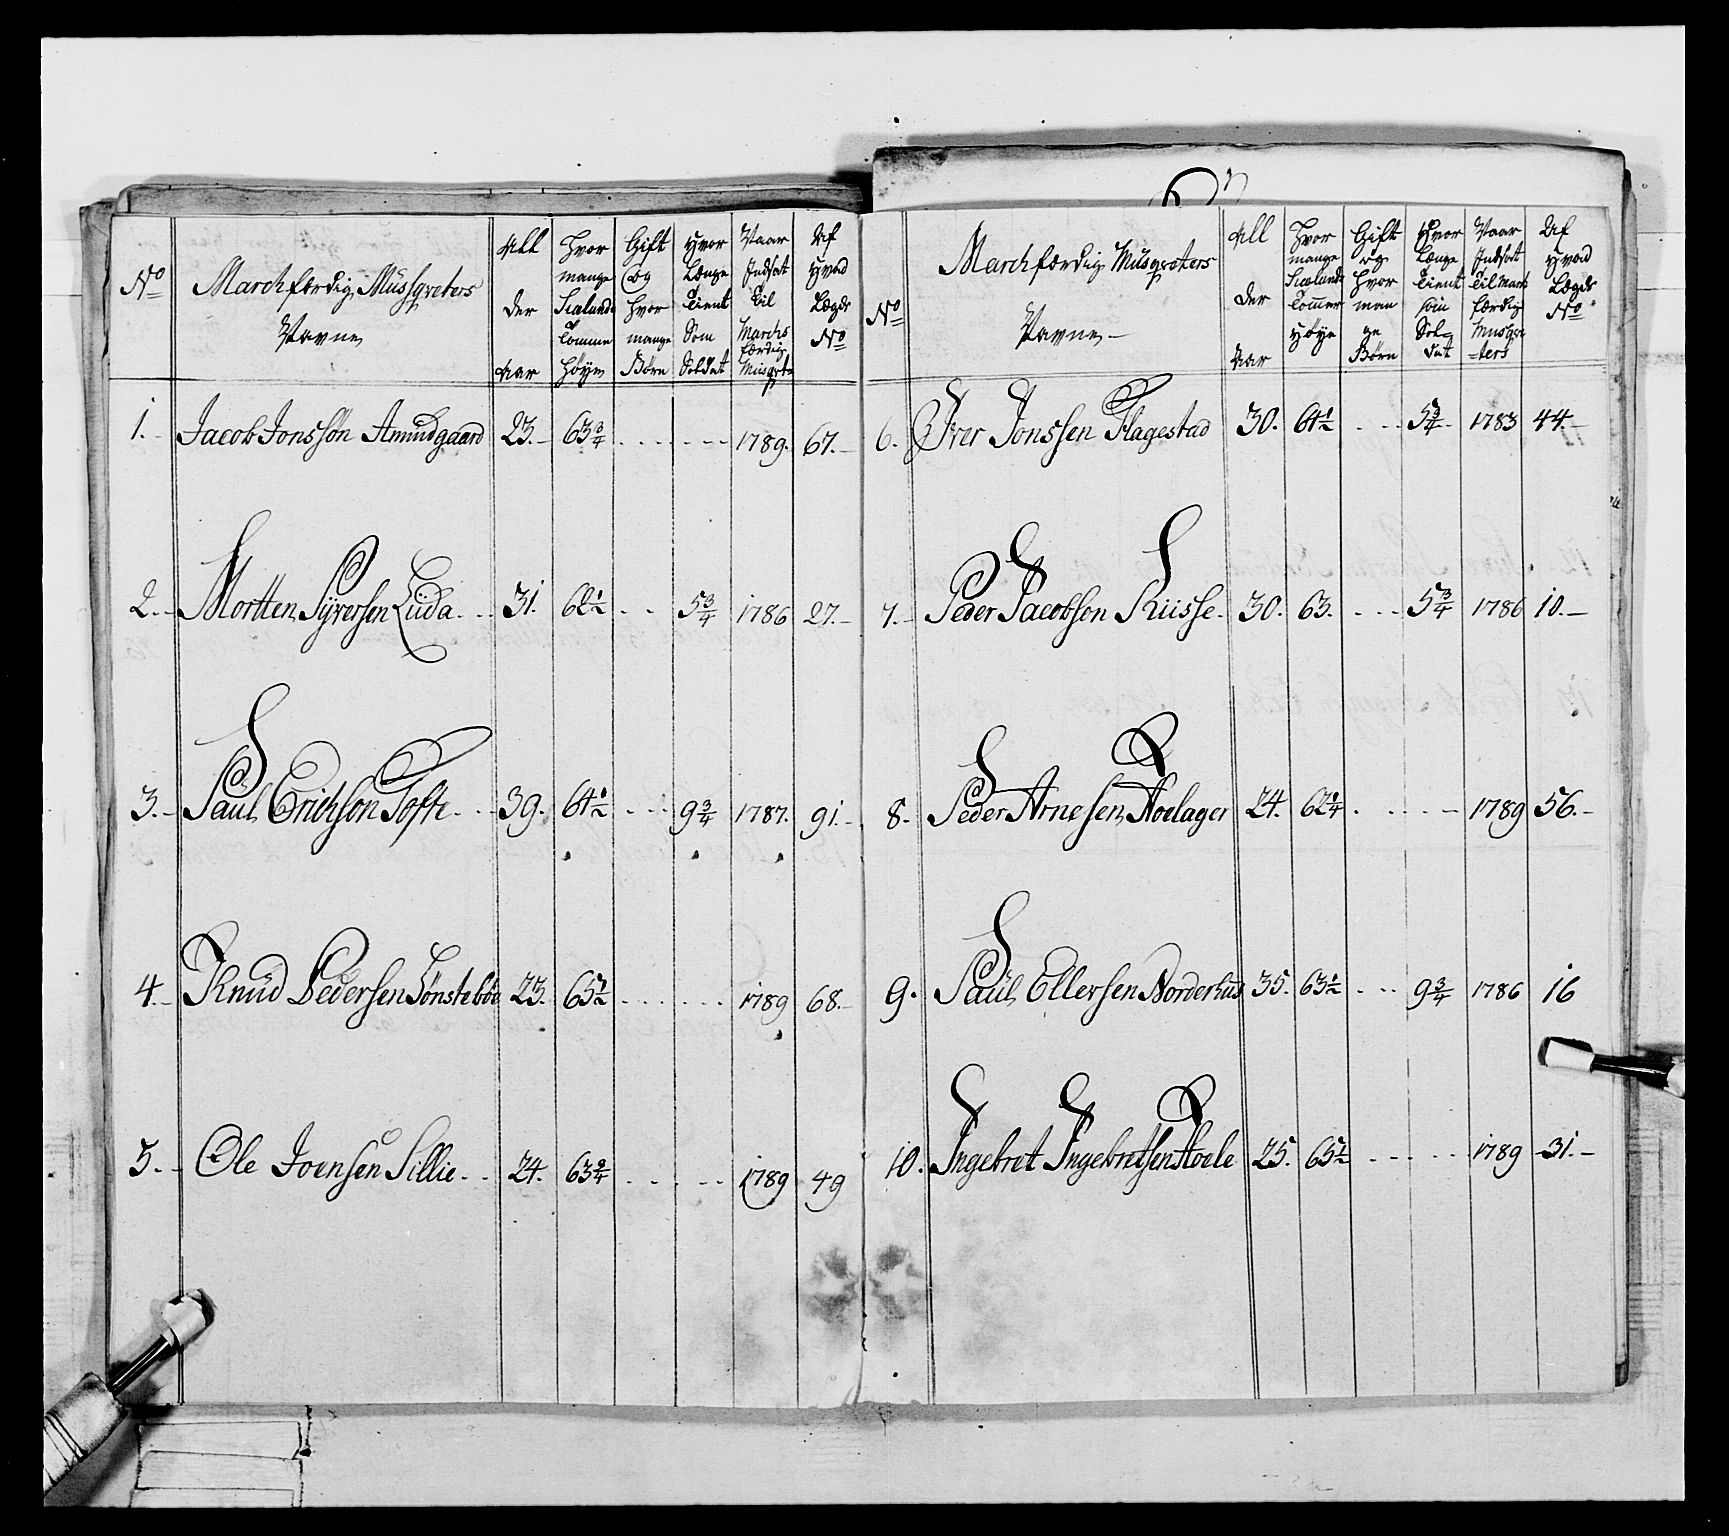 No
Marchfærdig Musqveters
Navne
All
der
Aar
Hvor
mange
Siælands
Tomme
Høyn
Gift
Og
Hvor
mange
Børn
Hvor
Længe
Tient
Som
Soldat
Naar
Indsatt
Til
Marchs
færdig
Af
Hvad
Lægds
No
1. Jacob Jonssøn Amundgaard 23. 63 3/4 1789. 67.
2. Mortten Syversen Lüda 31. 62 1/2 5 3/4 1786 27.
3. Paul Erichson Tofte 39. 61 1/2 9 3/4 1787. 91.
4. Knud Pedersen Tønsteböe 23. 65 1/2 1789 68.
5. Ole Joensen Sillie 24. 63 3/4 1789 49
No
Marchfærdig Musqveters
Navne
All
der
Aar
Hvor
mange
Siælands
Tommer
Høye
Gift
og
Hvor
man
ge
Børn
Hvor
Længe
Tient
som
Sol
dat
Naar
Indsatt
Til March
færdig
Musqve
ters
Af
Hvad
Lægds
No
6. Iver Jonssen Flagestad 30. 61 1/2 5 3/4 1783 44.
7. Peder Jacobson Kiisse 30. 63. 5 3/4 1786 10.
8. Peder Arnesen Hoelager 24. 62 1/4 1789 56.
9. Paul Ellersen Norderhus 35. 63 1/2 9 3/4 1786 16
10. Ingebret Ingebretsen Hoele 25. 65 1/2 1789 31.